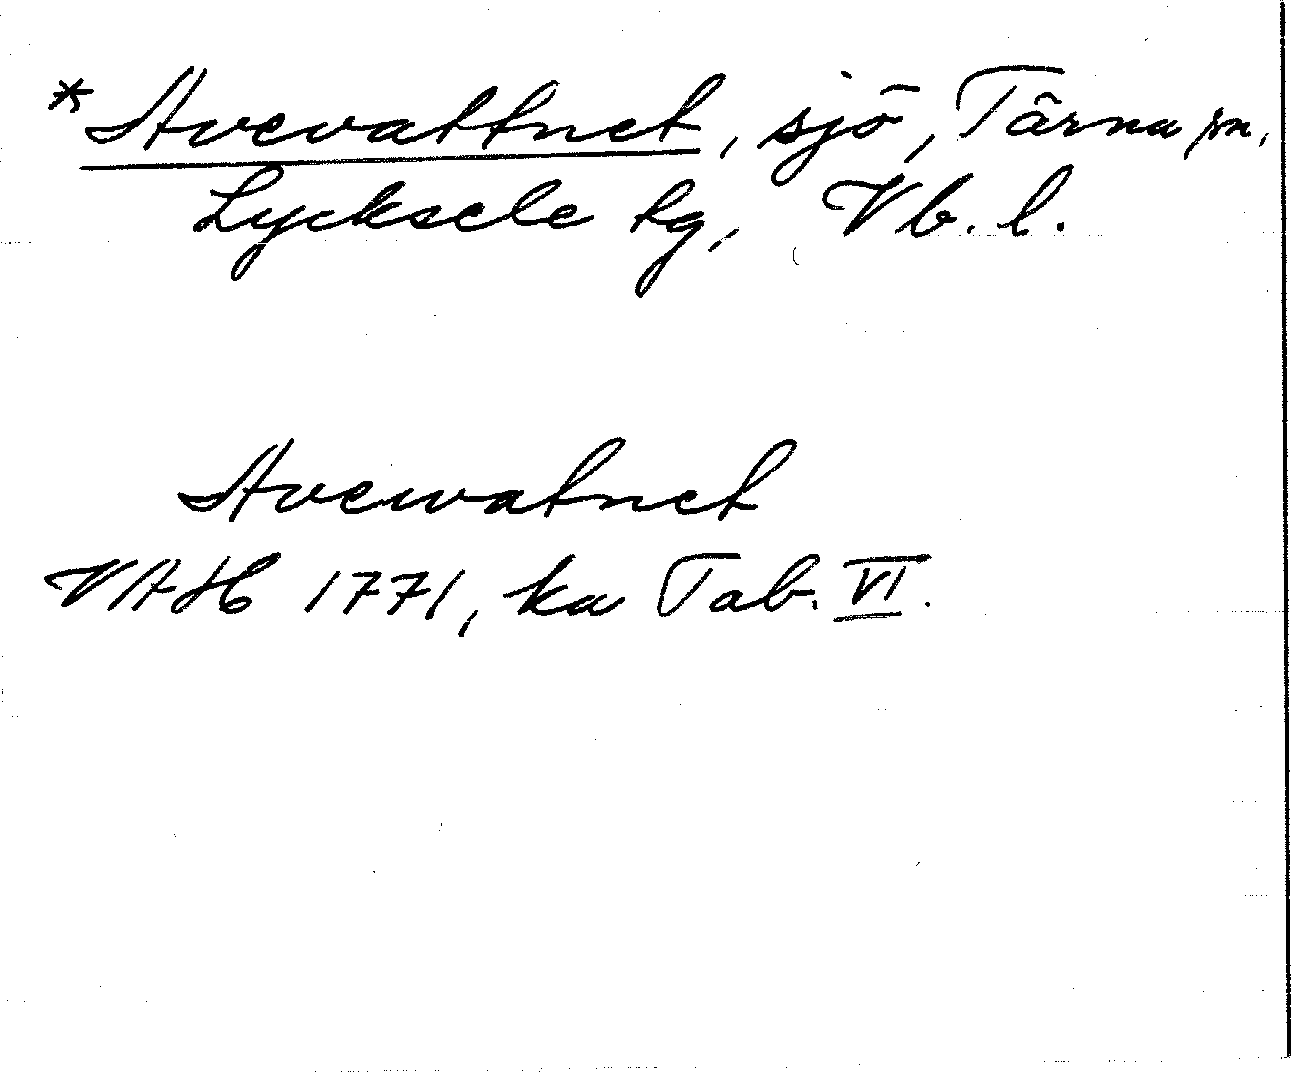 *Avevattnet, sjö, Tärna sn,
Lycksele lg, Vb. l.
Avewatnet
VAH 1771, ka Tab. VI.